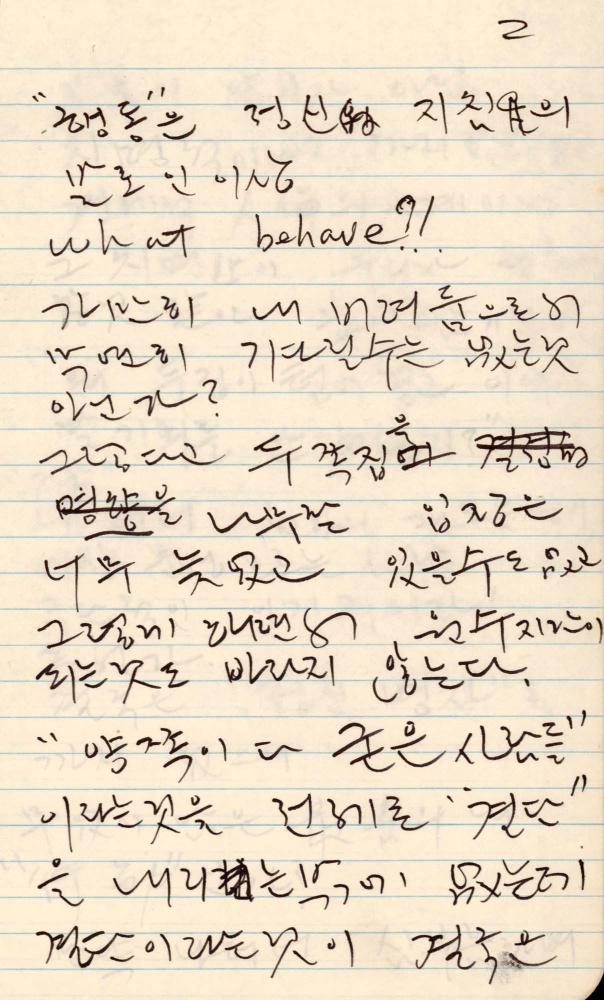 2
"행동"은 정신 지침의
발로인 이상
what behave?!
가만히 내 버려둠으로써
막연히 기다릴수는 없는것
아닌가?
그렇다고 두 쪽집을
나무랄 입장은
너무 늦었고 있을수도 없고
그렇게 해면서 원수지간이
되는것도 바라지 않는다.
"양쪽이 다 굳은 사람들"
이라는것을 전제로 "결단"
을 내리는밖에 없는데
결단이라는것이 결국은